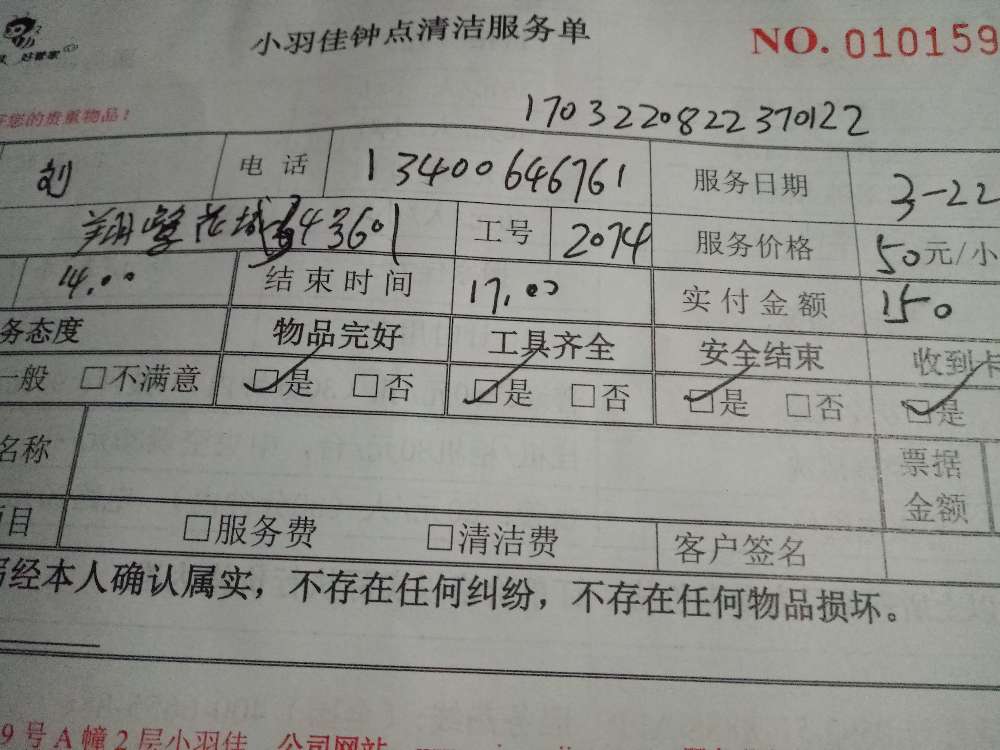 小羽佳钟点清洁服务单 NO. 010159
好管家
您的贵重物品!
1703220822370122
刘 电话 13400646761 服务日期 3-22
翔鹭花城 43601 工号 2074 服务价格 50元/小
14.00 结束时间 17.00 实付金额 150
务态度 物品完好 工具齐全 安全结束 收到卡
一般 □不满意 □是 □否 □是 □否 □是 □否 □是
名称 票据
金额
项目 □服务费 □清洁费 客户签名
经本人确认属实，不存在任何纠纷，不存在任何物品损坏。
9号A幢2层小羽佳 公司网站